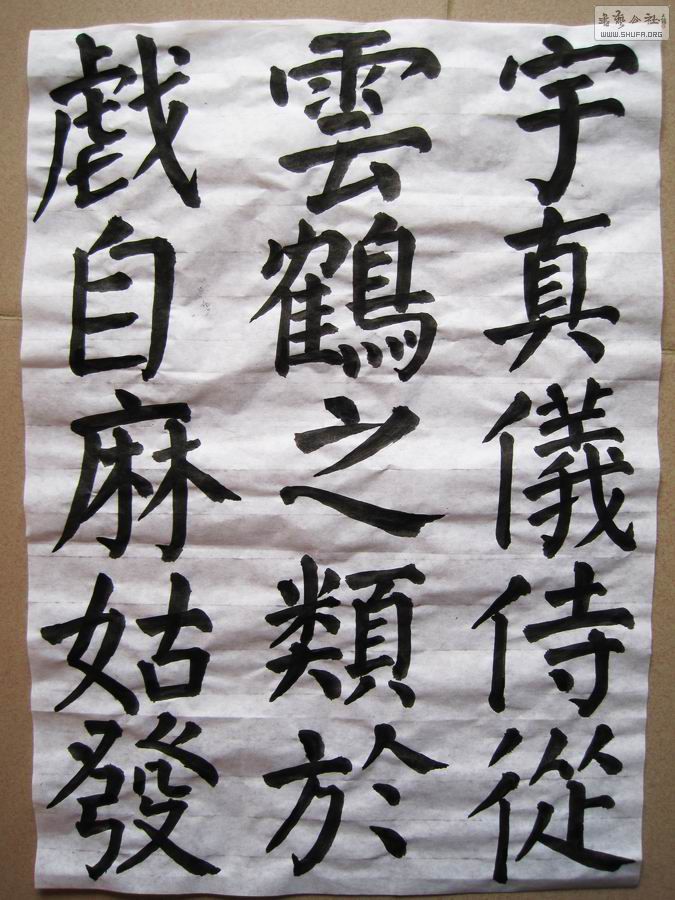 宇真儀侍從
雲鶴之類於
戲自麻姑發
書藝公社
WWW.SHUFA.ORG